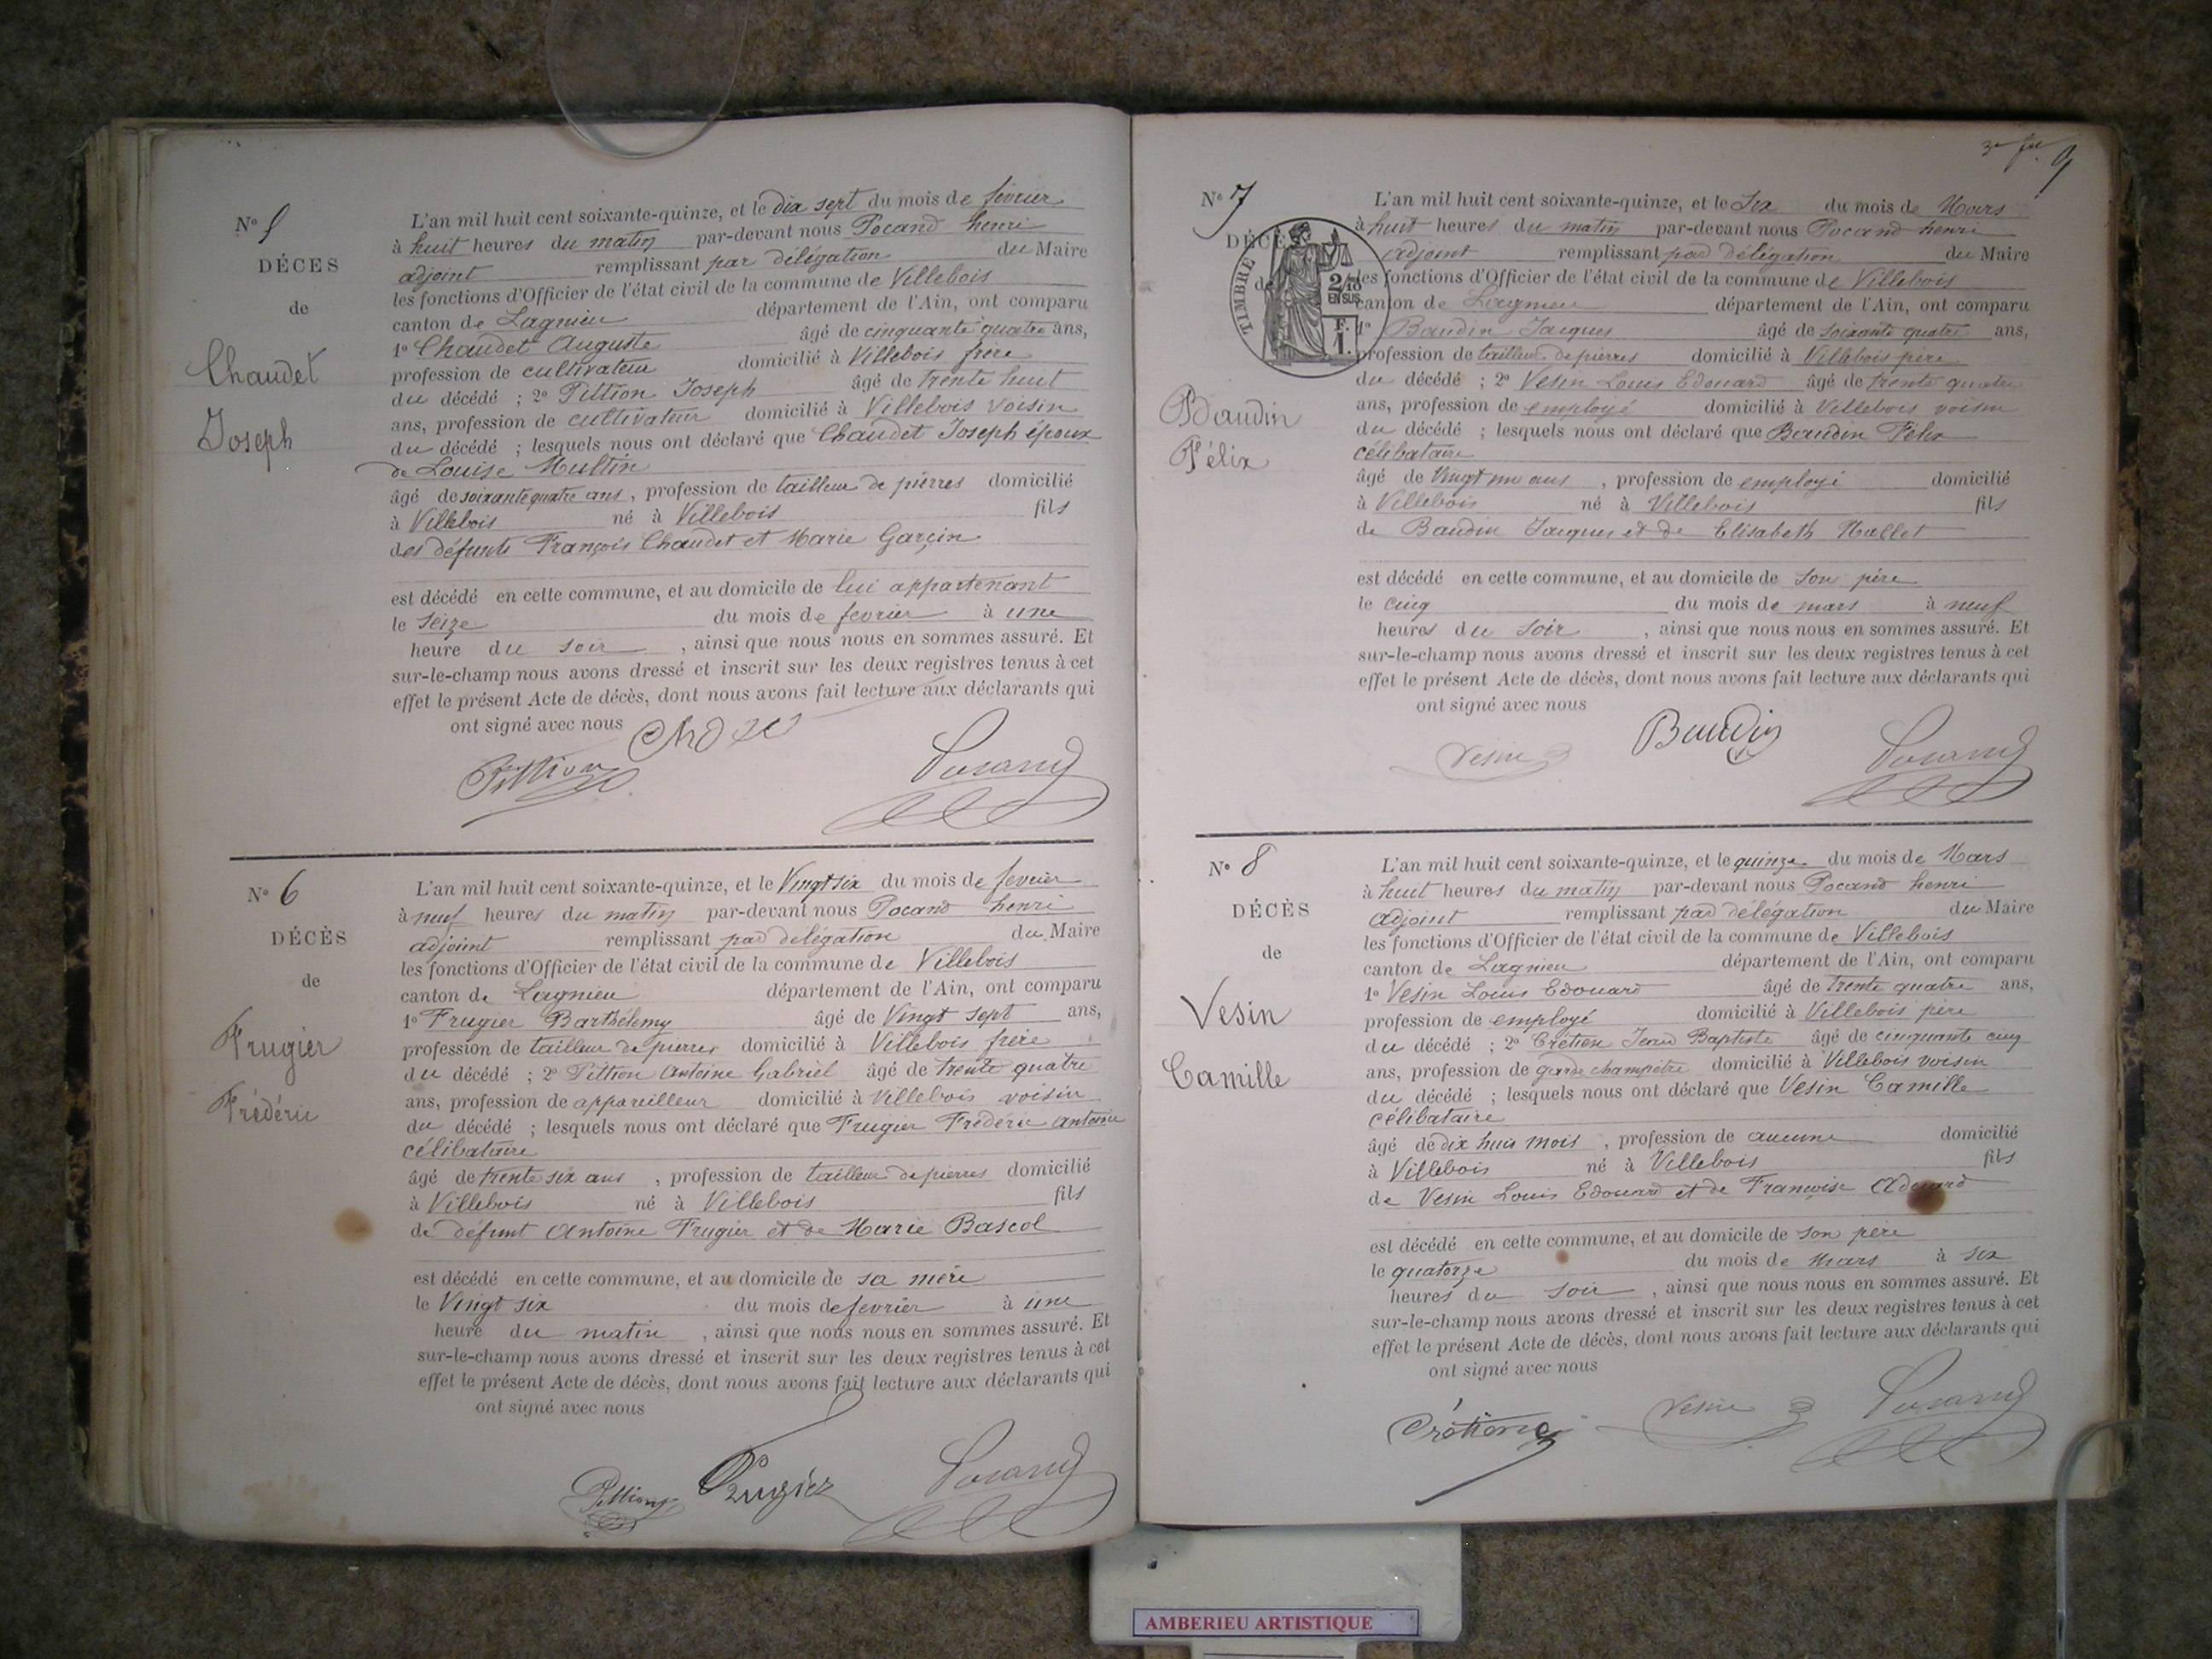 N° 5
DÉCES
de
Chaudet
Joseph
L'an mil huit cent soixante-quinze, et le dix sept du mois de février
à huit heures du matin par-devant nous Pocand henri
adjoint remplissant par délégation du Maire
les fonctions d'Officier de l'état civil de la commune de Villebois
canton de Lagnieu département de l'Ain, ont comparu
1° Chaudet Auguste âgé de cinquante quatre ans,
profession de cultivateur domicilié à Villebois frère
du décédé ; 2° Pittion Joseph âgé de trente huit
ans, profession de cultivateur domicilié à Villebois voisin
du décédé ; lesquels nous ont déclaré que Chaudet Joseph époux
de Louise Multin
âgé de soixante quatre ans, profession de tailleur de pierres domicilié
à Villebois né à Villebois fils
des défunts François Chaudet et Marie Garçin
est décédé en cette commune, et au domicile de lui appartenant
le seize du mois de fevrier à une
heure du soir, ainsi que nous nous en sommes assuré. Et
sur-le-champ nous avons dressé et inscrit sur les deux registres tenus à cet
effet le présent Acte de décès, dont nous avons fait lecture aux déclarants qui
ont signé avec nous
Pittion Pocand
N° 6
DÉCÈS
de
Frugier
Frédéric
L'an mil huit cent soixante-quinze, et le Vingt six du mois de fevrier
à neuf heures du matin par-devant nous Pocand henri
adjoint remplissant par delégation du Maire
les fonctions d'Officier de l'état civil de la commune de Villebois
canton de Lagnieu département de l'Ain, ont comparu
1° Frugier Barthélemy âgé de Vingt sept ans,
profession de tailleur de pierres domicilié à Villebois frère
du décédé ; 2° Pittion Antoine Gabriel âgé de trente quatre
ans, profession de appareilleur domicilié à Villebois voisin
du décédé ; lesquels nous ont déclaré que Frugier Frédéric antoine
célibataire
âgé de trente six ans, profession de tailleur de pierres domicilié
à Villebois né à Villebois fils
de défunt Antoine Frugier et de Marie Bascol
est décédé en cette commune, et au domicile de sa mère
le Vingt six du mois de fevrier à une
heure du matin, ainsi que nous nous en sommes assuré. Et
sur-le-champ nous avons dressé et inscrit sur les deux registres tenus à cet
effet le présent Acte de décès, dont nous avons fait lecture aux déclarants qui
ont signé avec nous
Pittion Frugier Pocand
9
N° 7
DÉCÈS
de
TIMBRE
2/10
EN SUS
F.
1.
Baudin
Félix
L'an mil huit cent soixante-quinze, et le Six du mois de Mars
à huit heures du matin par-devant nous Pocand henri
adjoint remplissant par délégation du Maire
les fonctions d'Officier de l'état civil de la commune de Villebois
canton de Lagnieu département de l'Ain, ont comparu
1° Baudin Jacques âgé de soixante quatre ans,
profession de tailleur de pierres domicilié à Villebois père
du décédé ; 2° Vesin Louis Edouard âgé de trente quatre
ans, profession de employé domicilié à Villebois voisin
du décédé ; lesquels nous ont déclaré que Baudin Félix
célibataire
âgé de Vingt un ans, profession de employé domicilié
à Villebois né à Villebois fils
de Baudin Jacques et de Elisabeth Mallet
est décédé en cette commune, et au domicile de son père
le cinq du mois de mars à neuf
heures du soir, ainsi que nous nous en sommes assuré. Et
sur-le-champ nous avons dressé et inscrit sur les deux registres tenus à cet
effet le présent Acte de décès, dont nous avons fait lecture aux déclarants qui
ont signé avec nous
Vesin Baudin Pocand
N° 8
DÉCÈS
de
Vesin
Camille
L'an mil huit cent soixante-quinze, et le quinze du mois de Mars
à huit heures du matin par-devant nous Pocand henri
adjoint remplissant par délégation du Maire
les fonctions d'Officier de l'état civil de la commune de Villebois
canton de Lagnieu département de l'Ain, ont comparu
1° Vesin Louis Edouard âgé de trente quatre ans,
profession de employé domicilié à Villebois père
du décédé ; 2° Crétion Jean Baptiste âgé de cinquante cinq
ans, profession de garde champêtre domicilié à Villebois voisin
du décédé ; lesquels nous ont déclaré que Vesin Camille
célibataire
âgé de dix huit mois, profession de aucune domicilié
à Villebois né à Villebois fils
de Vesin Louis Edouard et de Françoise
est décédé en cette commune, et au domicile de son père
le quatorze du mois de Mars à six
heures du soir, ainsi que nous nous en sommes assuré. Et
sur-le-champ nous avons dressé et inscrit sur les deux registres tenus à cet
effet le présent Acte de décès, dont nous avons fait lecture aux déclarants qui
ont signé avec nous
Crétion Vesin Pocand
AMBERIEU ARTISTIQUE